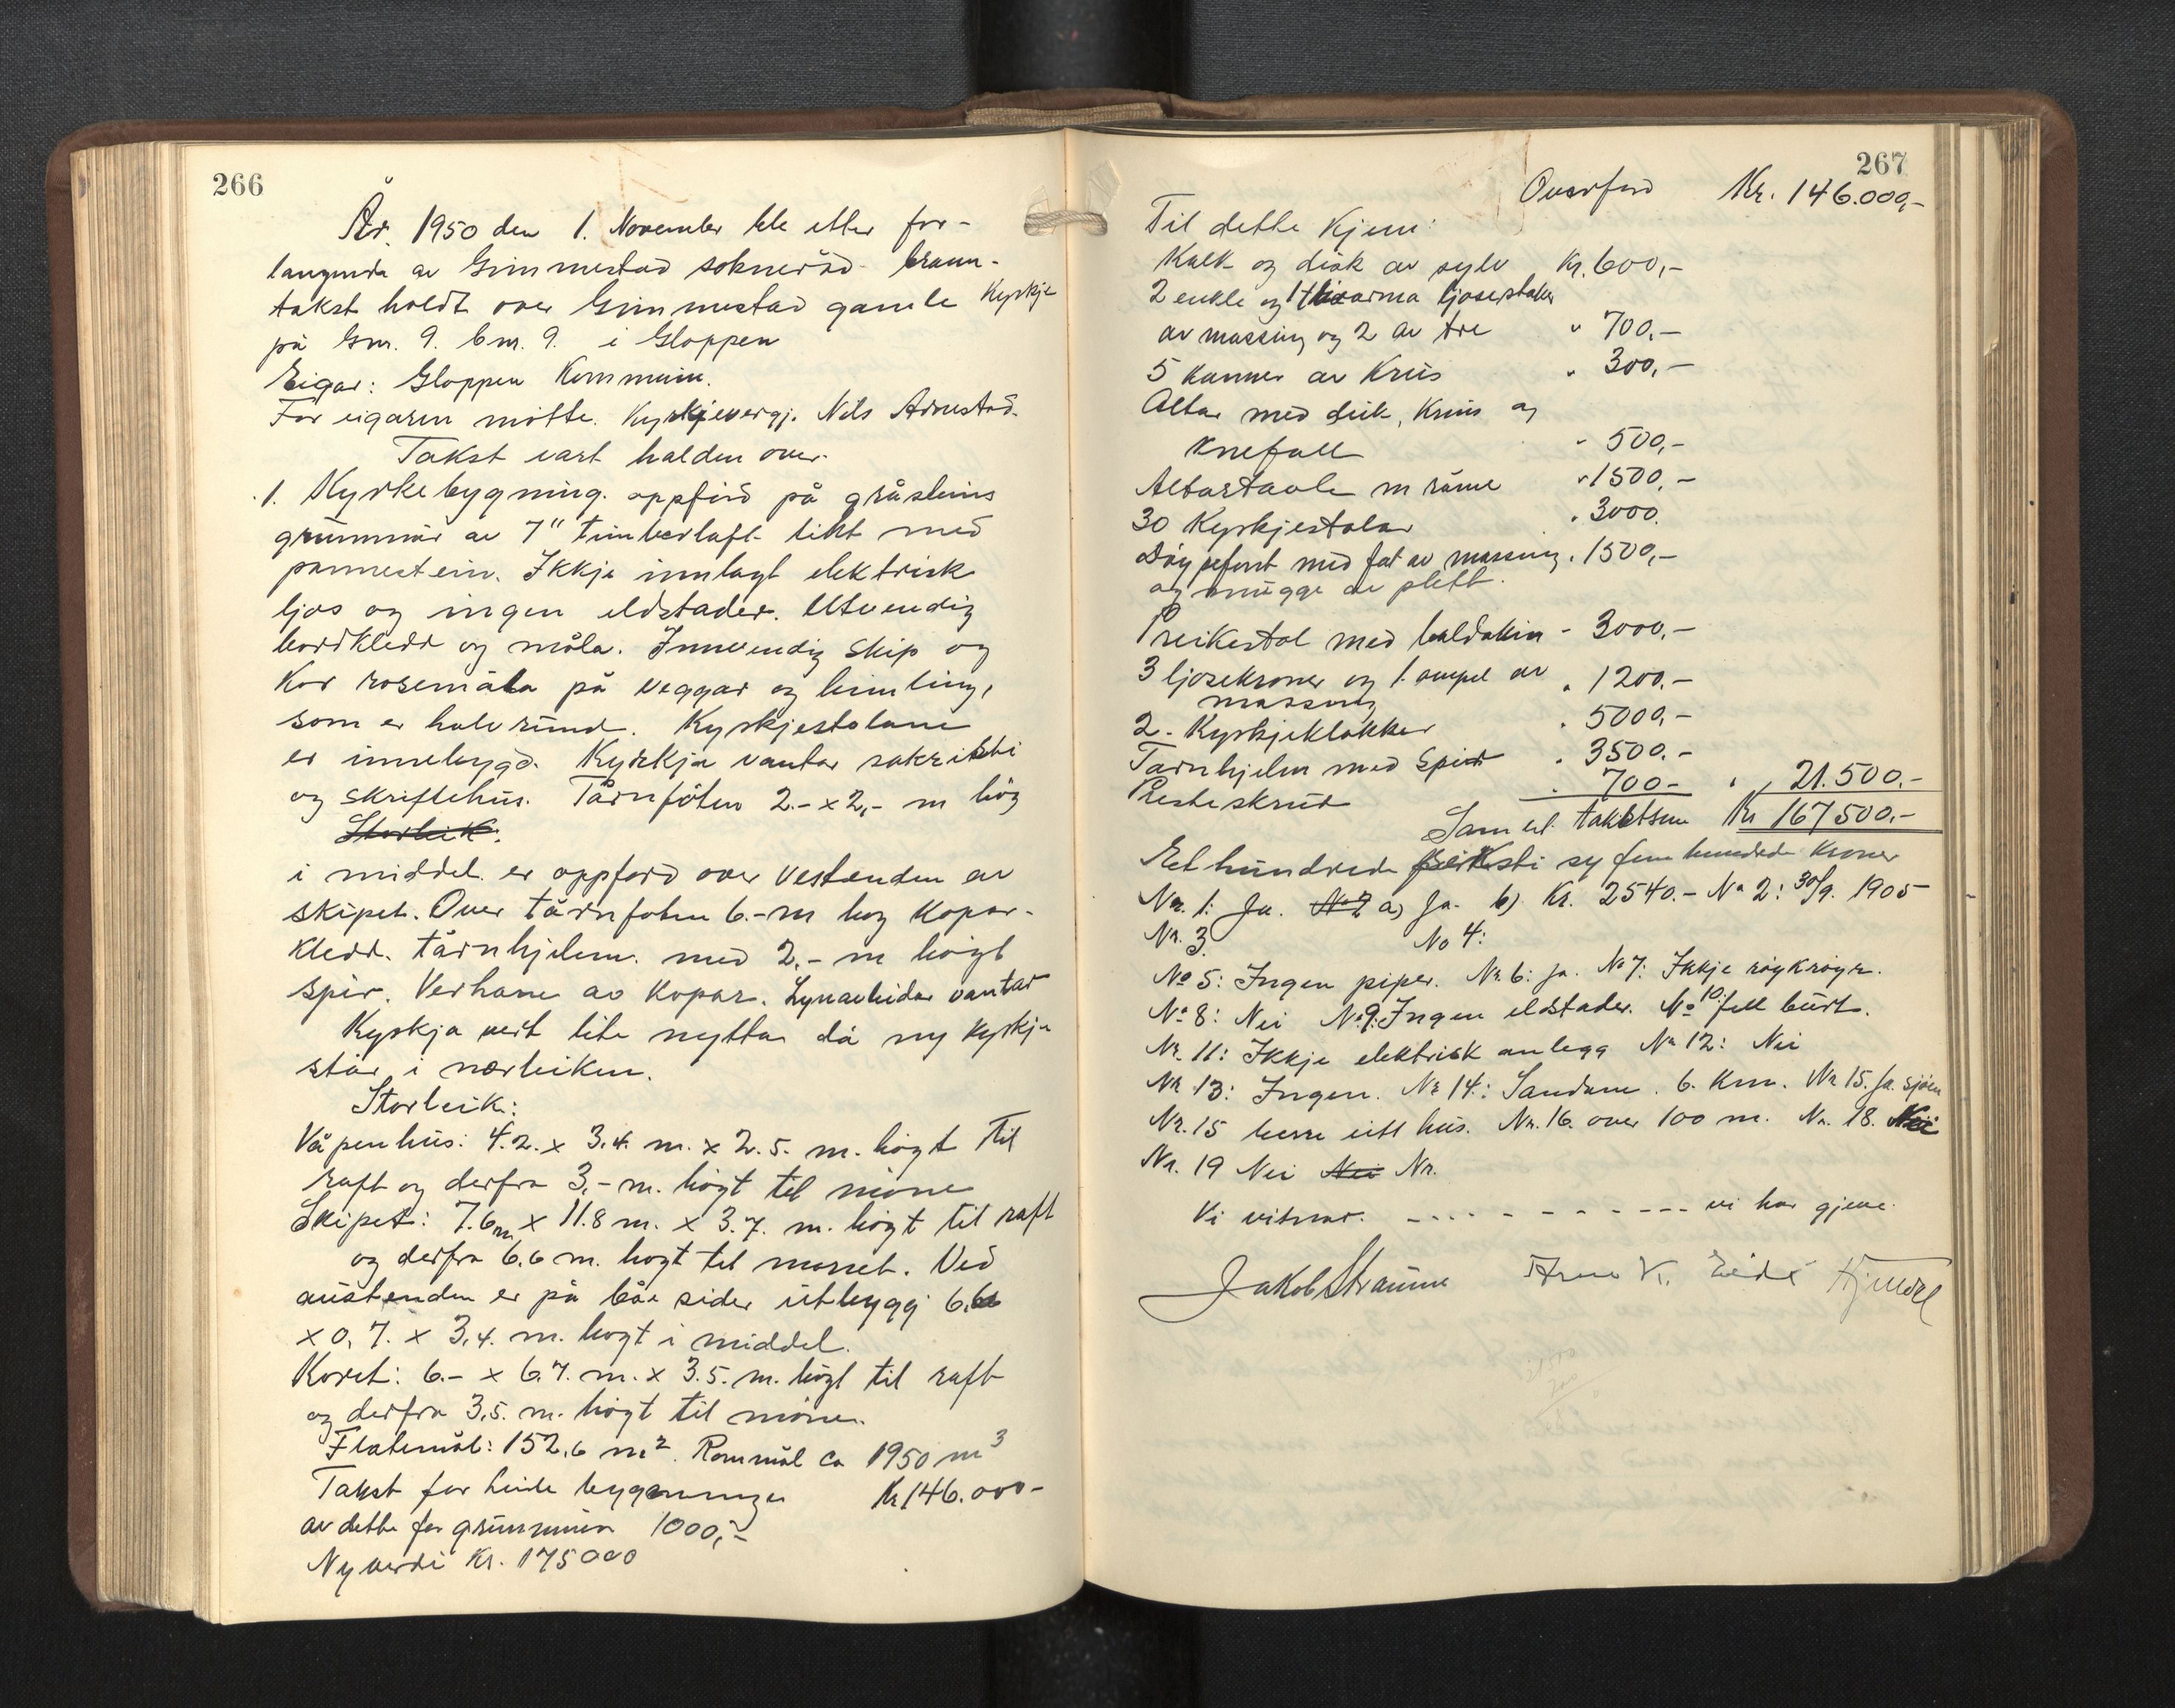 266
År. 1950 den 1. November ble etter for-
langende av Gimmestad sokneråd brann-
takst holdt over Gimmestad gamle Kyrkje
på Gnr. 9. bnr. 9. i Gloppen
Eigar: Gloppen Kommune.
For eigaren møtte. Kyrkjevergj. Nils Arnestad.
Takst vart halden over.
1. Kyrkebygning. oppførd på gråsteins
grunnmur av 7" timberlaft tekt med
pannestein. Ikkje innlagt elektrisk
ljos og ingen eldstader. Utvendig
bordkledd og måla. Innvendig skip og
Kor rosemåla på veggar og himling,
som er halv rund. Kyrkjestolane
er innebygd. Kyrkja vantar sakristi
og skriftehus. Tårnfoten 2.- x 2,- m høg
Storleik:
i middel. er oppførd over Vestenden av
skipet. Over tårnfoten 6.-m høg Kopar-
kledd. tårnhjelm. med 2.- m høgt
spir. Verhane av Kopar. Lynavleidar vantar
Kyrkja vert lite nytta då ny Kyrkja
står i nærleiken.
Storleik:
Våpenhus: 4.2. x 3.4. m. x 2.5. m. høgt til
raft og derfra 3,- m. høgt til møne
Skipet: 7.6m x 11.8 m. x 3.7. m. høgt til raft
og derfra 6.6 m. høgt til mønet. Ved
austenden er på båe sider utbygg 6.6
x 0.7. x 3.4. m. høgt i middel.
Koret: 6.- x 6.7. m. x 3.5. m. høgt til raft
og derfra 3.5. m. høgt til møne.
Flatemål: 152.6 m². Rommål ca 1950 m³
Takst for heile bygninger Kr 146.000-
av dette for grunnmur 1000,-
Nyverdi Kr. 175000
267
Overførd Kr. 146.000,-
Til dette Kjem:
Kalk og disk av sylv Kr. 600,-
2 enkle og 1 ljosestaker
av massing og 2 av tre " 700.-
5 Kanner av Krus " 300,-
Altar med duk, Krus og
Knefall " 500,-
Altartavle m råme " 1500,-
30 Kyrkjestolar " 3000.
Døypefont med fat av massing " 1500,-
og mugge av plett.
Preikestol med baldakin - 3000,-
3 ljosekroner og 1. ampel av " 1200.-
massing
2. Kyrkjeklokker " 5000,-
Tårnhjelm med Spir " 3500.-
Presteskrud " 700- " 21.500.-
Saml. takstsum Kr 167500.-
Eet hundred seksti sy fem hundrede Kroner
Nr. 1: Ja. No 2 a) Ja. b) Kr. 2540.- No 2: 30/9. 1905
Nr. 3. No 4:
No 5: Ingen piper. Nr. 6: Ja. No 7: Ikkje røykrøyr.
No 8: Nei No 9: Ingen eldstader. No 10: fell burt.
Nr. 11: Ikkje elektrisk anlegg Nr 12: Nei
Nr. 13: Ingen. Nr 14: Sandane. 6. Km. Nr 15. Ja. sjøen
Nr. 15 berre eitt hus. Nr. 16. over 100 m. Nr. 18. Nei
Nr. 19 Nei Nei Nr.
Vi vitnar. - - - - - - - - - - - - vi har gjeve.
Jakob Straume Arne K. Eide